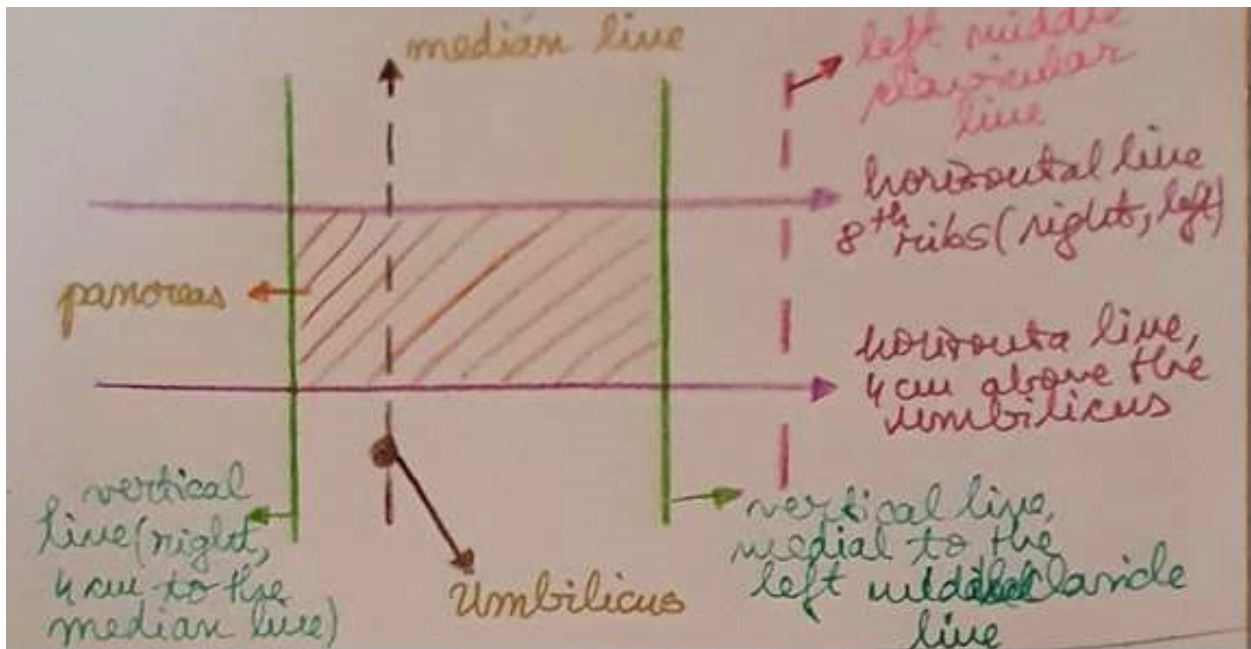 median line
left middle
clavicular
line
horizontal line
8th ribs (right, left)
pancreas
horizonta line,
4 cm above the
umbilicus
vertical
line (right,
4 cm to the
median line)
Umbilicus
vertical line,
medial to the
left
line